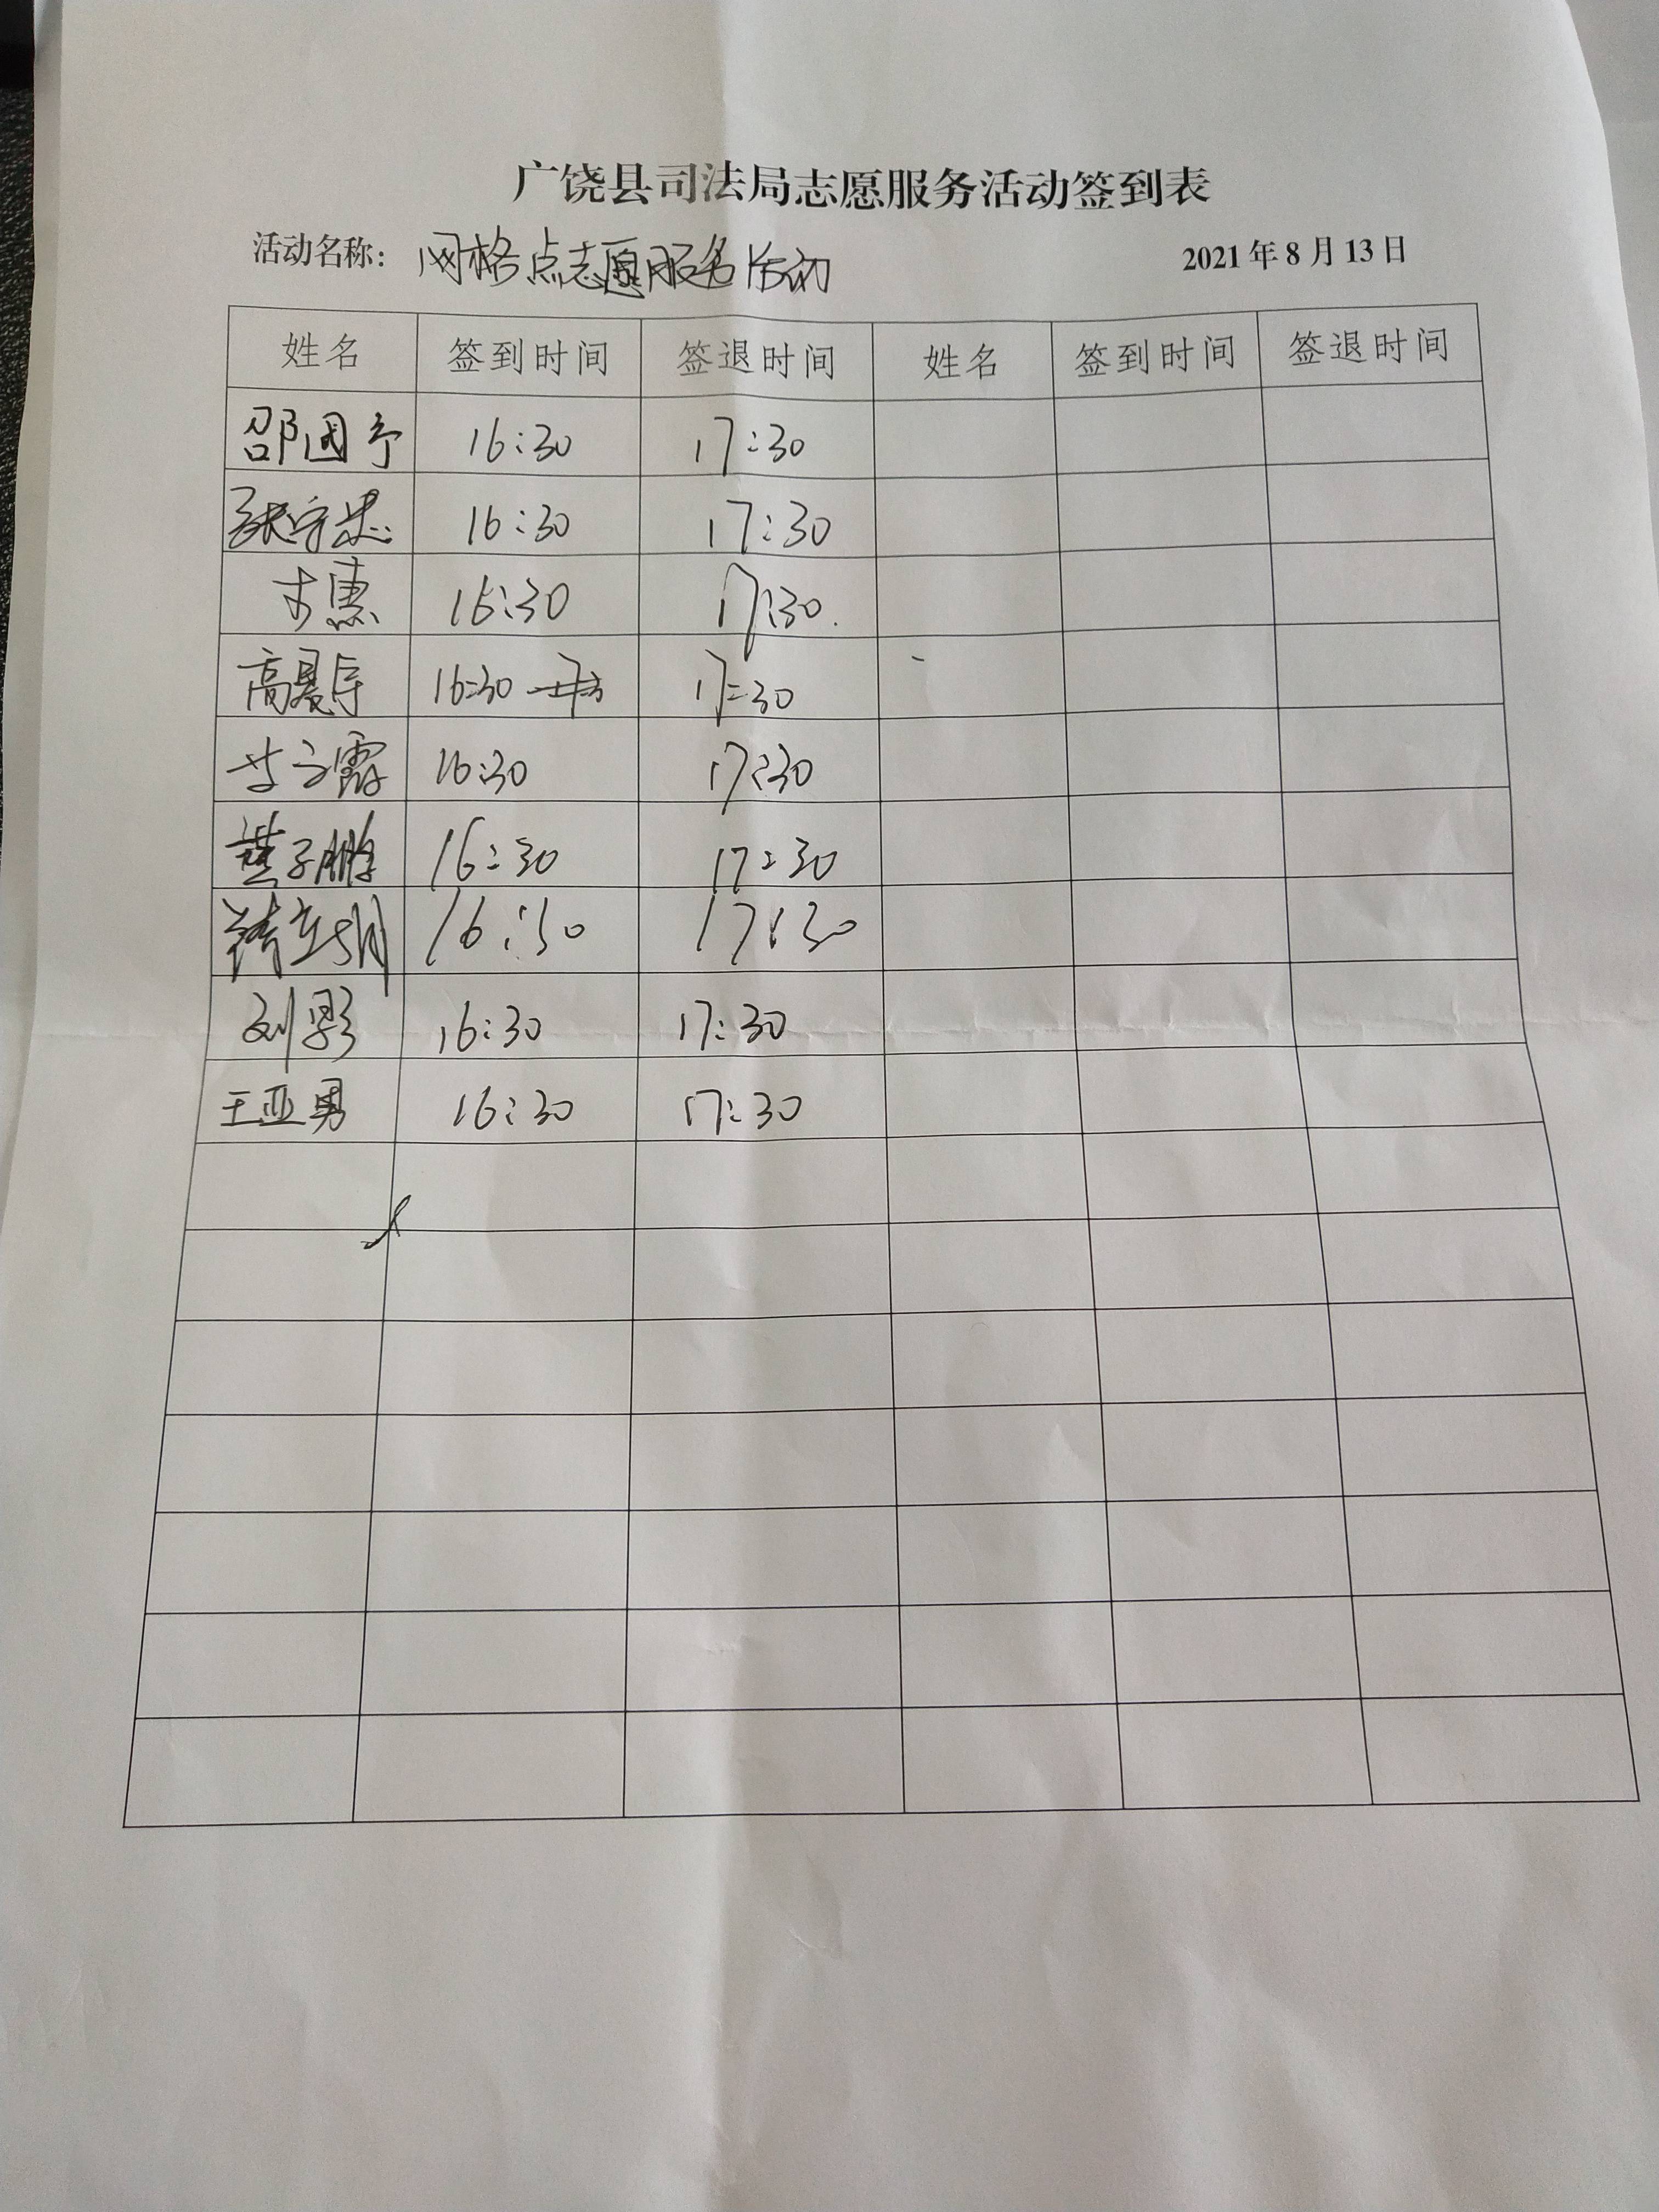 广饶县司法局志愿服务活动签到表
活动名称：网格点志愿服务活动 2021年8月13日
姓名 签到时间 签退时间 姓名 签到时间 签退时间
邵国予 16:30 17:30
张守忠 16:30 17:30
16:30 17:30
16:30 17:30
16:30 17:30
16:30 17:30
16:30 17:30
刘影 16:30 17:30
王亚男 16:30 17:30